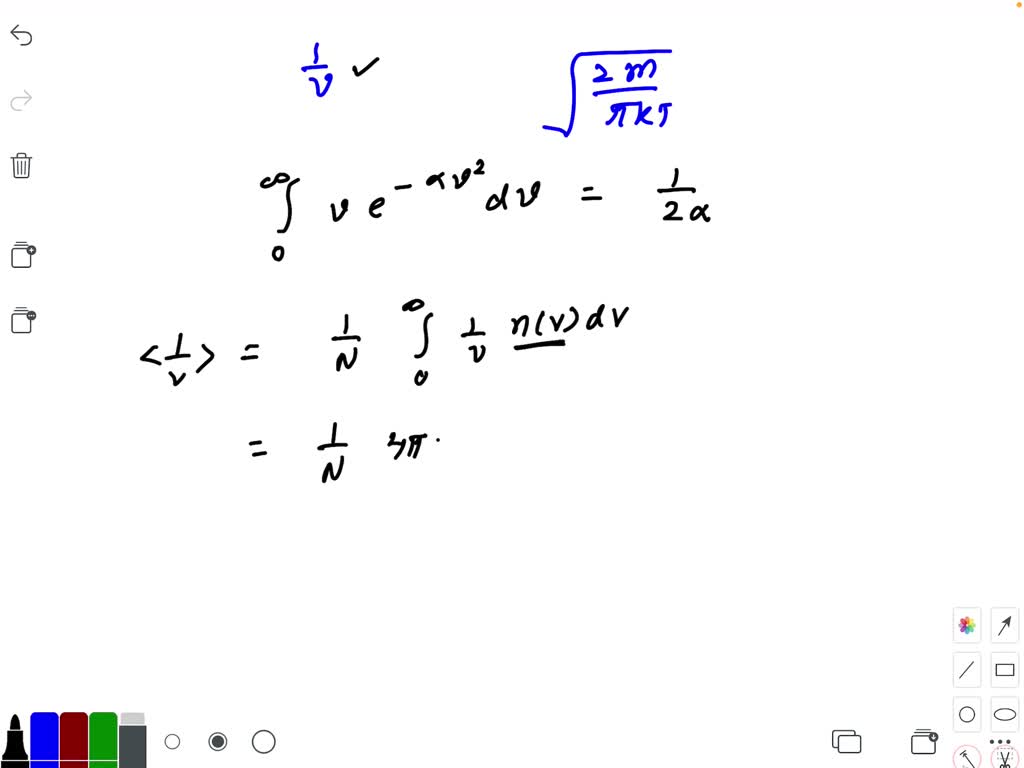 1/v ✓ √(2m/πkT)
∫₀^∞ v e^(-αv²) dv = 1/2α
<1/v> = 1/N ∫₀^∞ 1/v n(v) dv
= 1/N 4π·